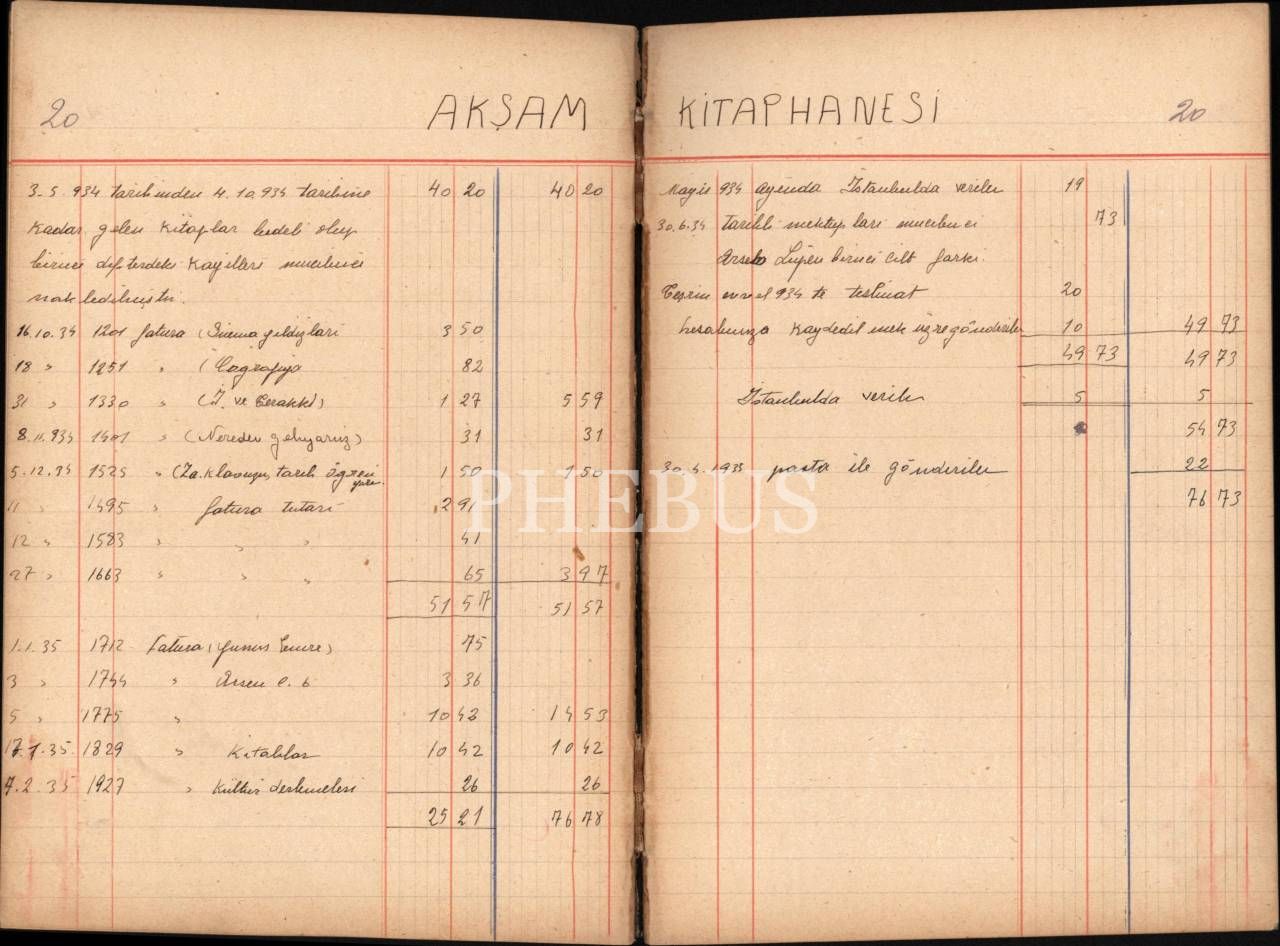 20 AKŞAM
3.5.934 tarihinden 4.10.934 tarihine 40 20 40 20
Kadar gelen Kitaplar bedeli olup
birinci defterdeki Kayitlari mucibince
nakledilmiştir.
16.10.34 1201 fatura (Sinema yildizlari 3 50
18 " 1251 " (Cografya 82
31 " 1330 " (İ. ve Terakki) 1 27 5 59
8.11.934 1401 " (Nereden geliyoruz) 31 31
5.12.34 1525 " (Za. Klavuzu, tarih 1 50 1 50
11 " 1495 " fatura tutari 2 91
12 " 1583 " " " 41
27 " 1663 " " " 65 3 97
51 57 51 57
1.1.35 1712 Fatura (Yunus Emre) 75
3 " 1744 " Arsen L. 6 3 36
5 " 1775 " 10 42 14 53
17.1.35 1829 " Kitablar 10 42 10 42
7.2.35 1927 " Kültür 26 26
25 21 76 78
KİTAPHANESİ 20
Mayis 934 ayenda İstanbulda verilen 19
30.6.34 tarihli mektupları mucibince 73
Arsen Lüpen birinci cilt farki.
Teşrin evvel 934 te teslimat 20
hesabınıza Kaydedilmek üzre gönderilen 10 49 73
49 73 49 73
İstanbulda verilen 5 5
54 73
30.4.1935 posta ile gönderilen 22
76 73
PHEBUS